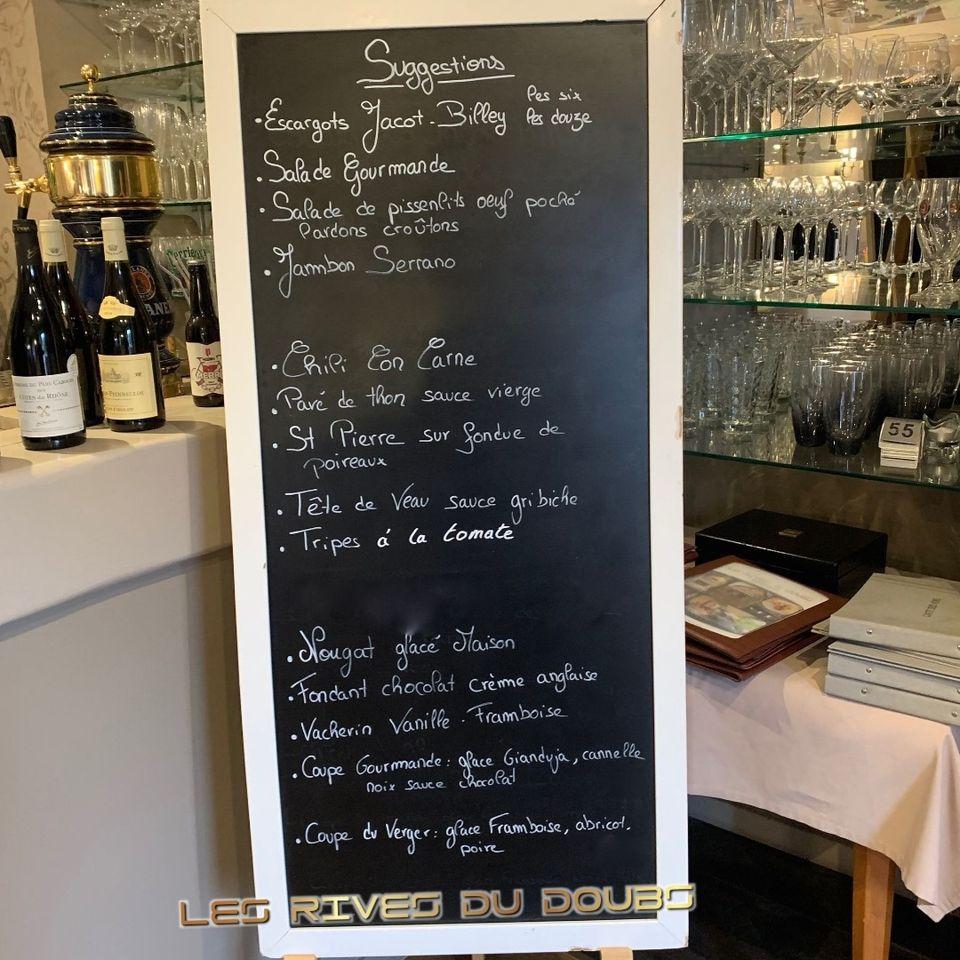 Suggestions
• Escargots Jacot-Billey les six
les douze
• Salade Gourmande
• Salade de pissenlits oeuf poché
lardons croûtons
• Jambon Serrano
• Chili Con Carne
• Pavé de thon sauce vierge
• St Pierre sur fondue de
poireaux
• Tête de Veau sauce gribiche
• Tripes á la tomate
• Nougat glacé Maison
• Fondant chocolat crème anglaise
• Vacherin Vanille - Framboise
• Coupe Gourmande: glace Gianduja, cannelle
noix sauce chocolat
• Coupe du Verger: glace Framboise, abricot,
poire
LES RIVES DU DOUBS
55
CÔTES du RHÔNE